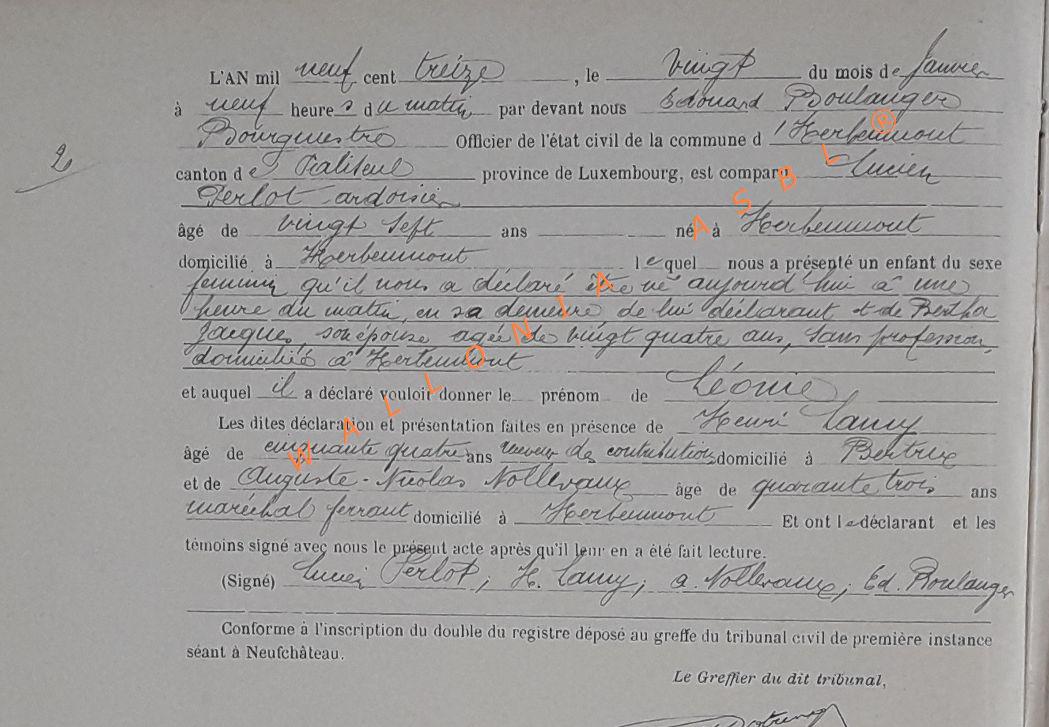 L'AN mil neuf cent treize, le vingt du mois de Janvier
à neuf heures du matin par devant nous Edouard Boulanger
Bourgmestre Officier de l'état civil de la commune d'Herbeumont
2
canton de Paliseul province de Luxembourg, est comparu Lucien
Perlot ardoisier
âgé de vingt sept ans né à Herbeumont
domicilié à Herbeumont lequel nous a présenté un enfant du sexe
féminin qu'il nous a déclaré être né aujourd'hui à une
heure du matin, en sa demeure de lui déclarant et de Bertha
Jacques, son épouse agée de vingt quatre ans, sans profession,
domiciliés à Herbeumont
et auquel il a déclaré vouloir donner le prénom de Léonie
Les dites déclaration et présentation faites en présence de Henri Lamy
âgé de cinquante quatre ans receveur de contributions domicilié à Bertrix
et de Auguste-Nicolas Nollevaux âgé de quarante trois ans
maréchal ferrant domicilié à Herbeumont Et ont le déclarant et les
témoins signé avec nous le présent acte après qu'il leur en a été fait lecture.
(Signé) Lucien Perlot, H. Lamy, A. Nollevaux; Ed. Boulanger
Conforme à l'inscription du double du registre déposé au greffe du tribunal civil de première instance
séant à Neufchâteau.
Le Greffier du dit tribunal,
WALLONIA ASBL ®